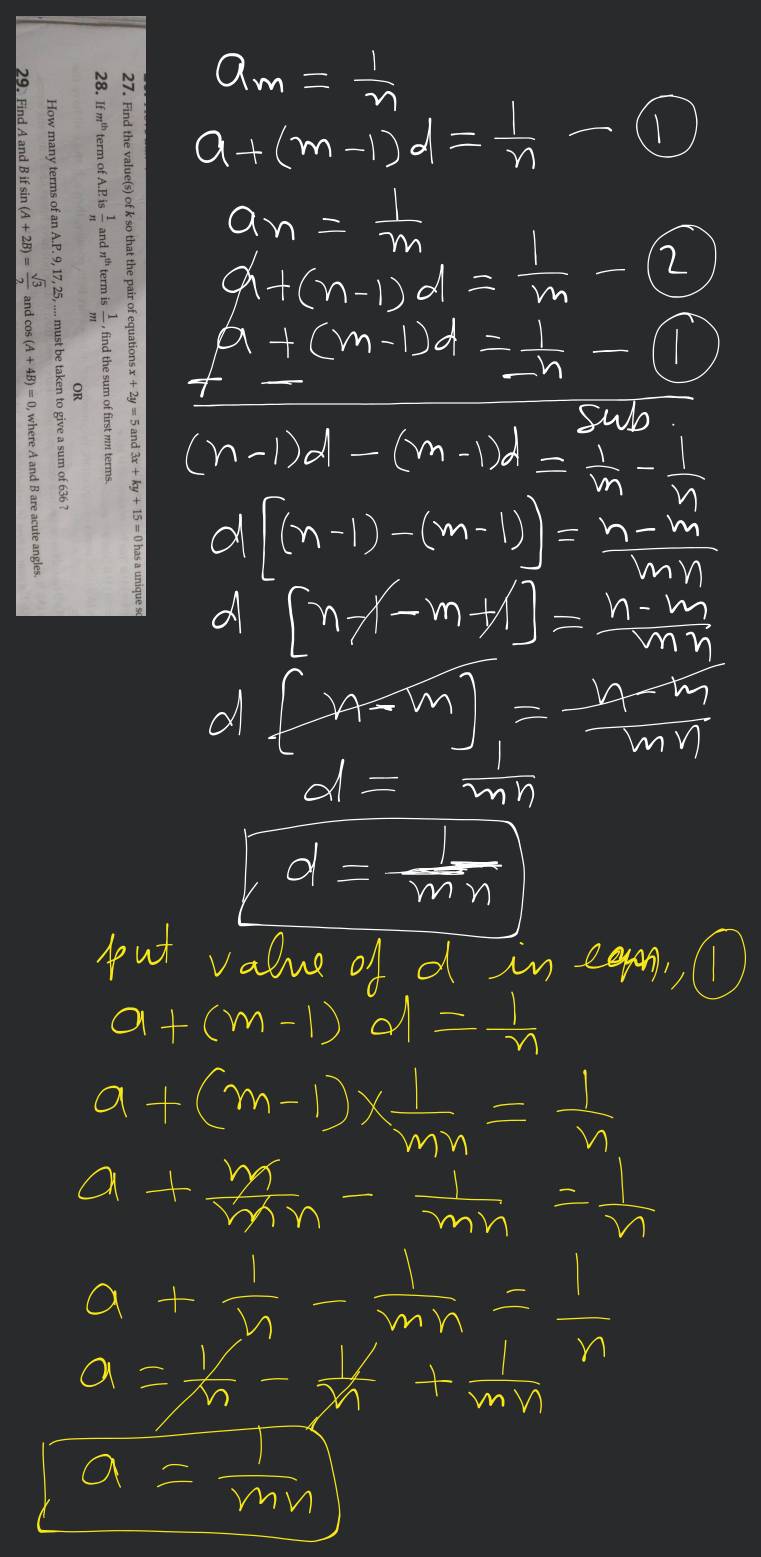 27. Find the value(s) of k so that the pair of equations x + 2y = 5 and 3x + ky + 15 = 0 has a unique
28. If mᵗʰ term of A.P. is 1/n and nᵗʰ term is 1/m, find the sum of first mn terms.
OR
How many terms of an A.P. 9, 17, 25, .... must be taken to give a sum of 636 ?
29. Find A and B if sin (A + 2B) = √3/2 and cos (A + 4B) = 0, where A and B are acute angles.
am = 1/n
a+(m-1)d = 1/n - ①
an = 1/m
a+(n-1)d = 1/m - ②
a+(m-1)d = 1/n - ①
+ - -
sub.
(n-1)d - (m-1)d = 1/m - 1/n
d[(n-1)-(m-1)] = n-m/mn
d [n-1-m+1] = n-m/mn
d [n-m] = n-m/mn
d = 1/mn
d = 1/mn
put value of d in eqn., ①
a+(m-1) d = 1/n
a+(m-1)×1/mn = 1/n
a + m/mn - 1/mn = 1/n
a + 1/n - 1/mn = 1/n
a = 1/n - 1/n + 1/mn
a = 1/mn